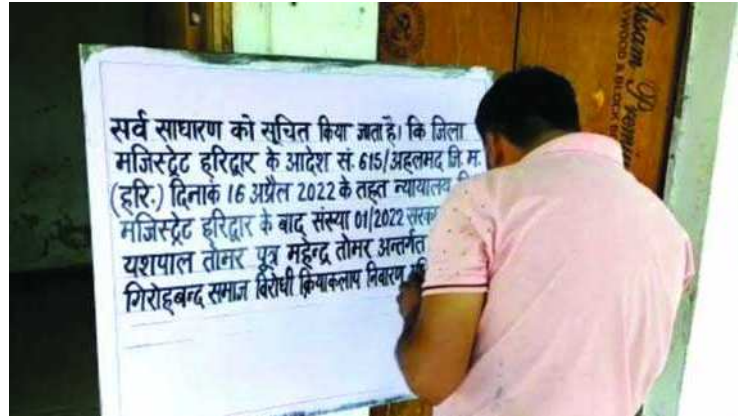 सर्व साधारण को सूचित किया जाता है। कि जिला
मजिस्ट्रेट हरिद्वार के आदेश सं. 615/अहलमद जि. म.
(हरि.) दिनांक 16 अप्रैल 2022 के तहत न्यायालय
मजिस्ट्रेट हरिद्वार के बाद संख्या 01/2022
यशपाल तोमर पुत्र महेन्द्र तोमर अन्तर्गत
गिरोहबन्द समाज विरोधी क्रियाकलाप निवारण
Assam Premium
PLYWOOD & BLOCK